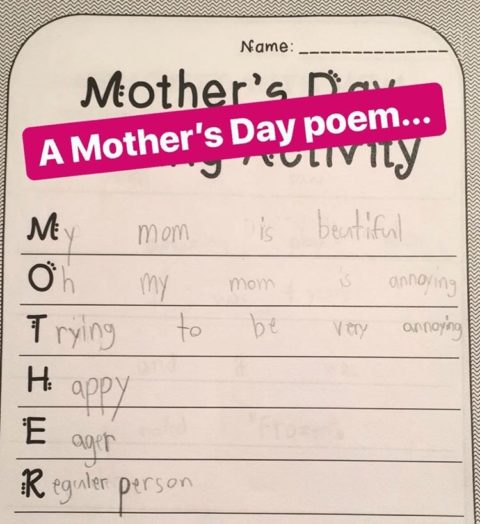 Name:
Mother's Day
A Mother's Day poem...
Activity
My mom is beutiful
Oh my mom is annoying
Trying to be very annoying
Happy
Eager
Reguler person